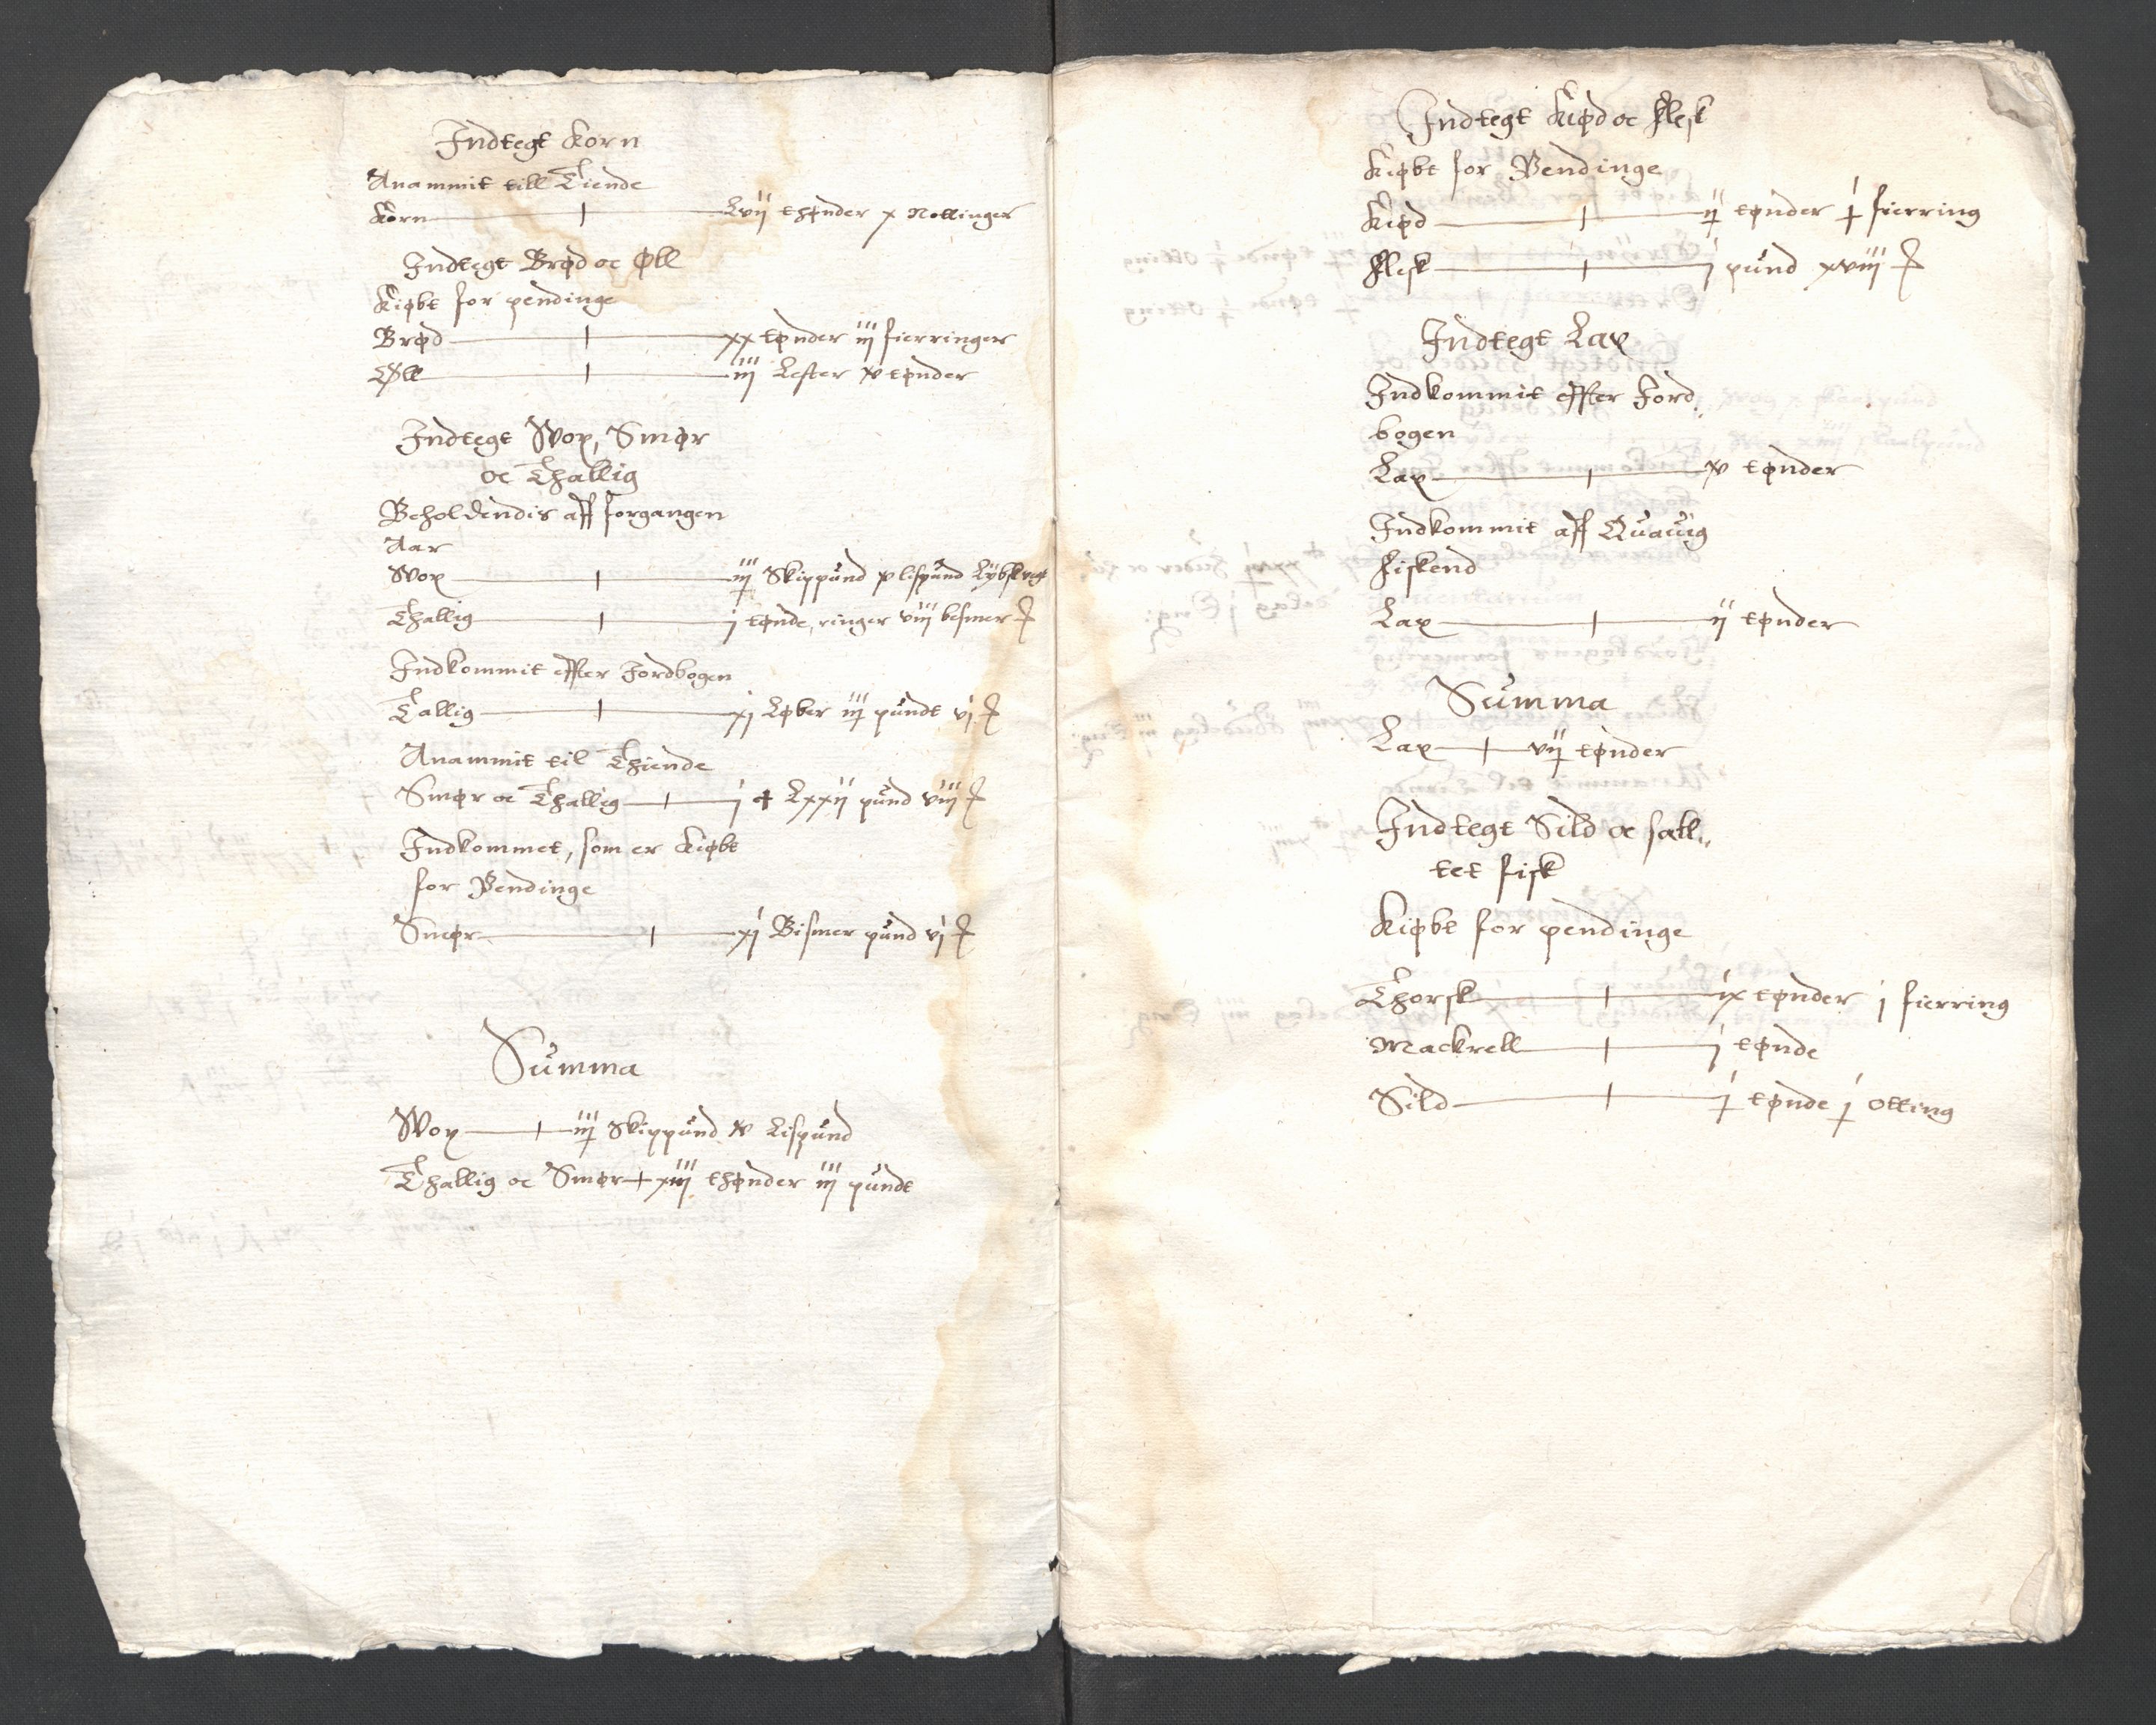 Indtegt Korn
Anammit till Tiende
Korn Lvij thønder x Nottinger
Indtegt Brød oc Øll
Kiøbt for pendinge
Brød xx tønder iij fierringer
Øll iij Lester x tønder
Indtegt Wox, Smør
oc Thallig
Beholdendis aff forgangen
Aar
Wox iij Skippund x lispund Lybsk vegt
Thallig j tønde, ringer viij besmer ℔
Indkommit effter Jordbogen
Tallig xj Løber iij pundt vj ℔
Anammit til Thiende
Smør oc Thallig j Lxxij pund viij ℔
Indkommet, som er Kiøbt
for Pendinge
Smør xj Bismer pund vj ℔
Summa
Wox iij Skippund x Lispund
Thallig oc Smør xiij thønder iij pundt
Indtegt Kiød oc flesk
Kiøbt for Pendinge
Kiød ij tønder j fierring
Flesk j pund xviij ℔
Indtegt Lax
Indkommit effter Jord
bogen
Lax v tønder
Indkommit aff Quauig
fiskend
Lax ij tønder
Summa
Lax vij tønder
Indtegt Sild oc salt
tet fisk
Kiøbt for pendinge
Thorsk ix tønder j fierring
Mackrell j tønde
Sild j tønde j otting